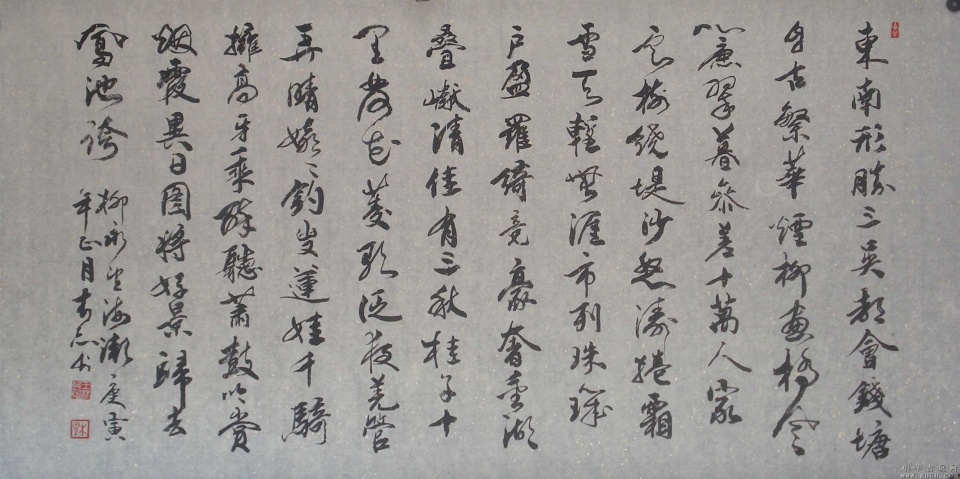 東南形勝三吳都會錢塘
自古繁華煙柳畫橋風
簾翠暮參差十萬人家
雲樹繞堤沙怒濤捲霜
雪天塹無涯市列珠璣
戶盈羅綺竞豪奢重湖
疊巘清佳有三秋桂子十
里荷花菱歌泛夜羌管
弄晴嬉〻釣叟蓮娃千騎
擁高牙乘醉聽蕭鼓吟賞
烟霞異日圖將好景歸去
鳳池誇
柳永望海潮庚寅
年正月志书